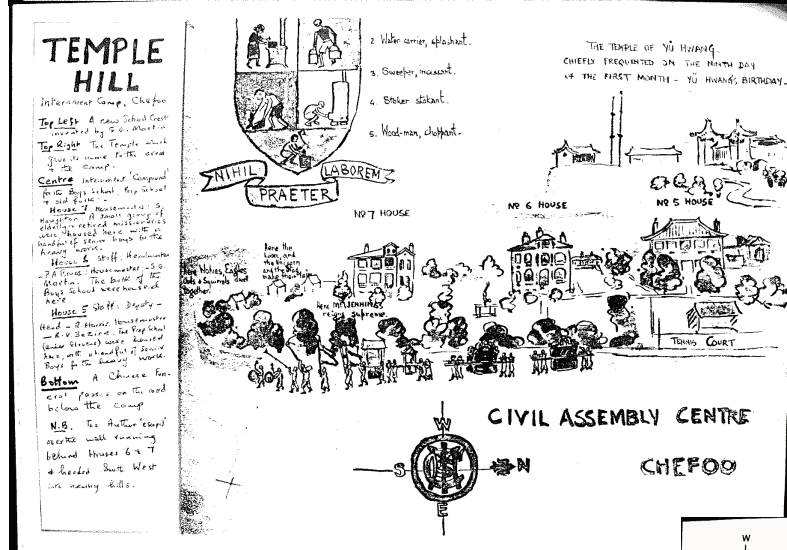 TEMPLE
HILL
Internment Camp, Chefoo
Top Left A new School Crest
invented by S.G. Martin
Top Right The Temple which
gave its name to the area
& the Camp.
Centre Internment Compound
for the Boys School, Prep School
& old folk.
House 7 Housemaster: S.
Houghton. A small group of
elderly retired missionaries
were housed here with a
handful of senior boys for the
heavy work.
House 6 Staff: Headmaster
- P.A. Bruce: Housemaster - S.G.
Martin. The bulk of
Boys School were housed
here
House 5 Staff: Deputy -
Head - R. Harris. Housemaster
The Prep School
were housed
here, with a handful of Senior
Boys for the heavy work.
Bottom A Chinese Fun-
eral passes on the road
below the camp
N.B. The Author 'escaped'
over the wall running
behind Houses 6 & 7
& headed South West
into nearby hills.
2 Water carrier, splashant.
3. Sweeper, incessant.
4. Stoker stokant.
5. Wood-man, choppant.
NIHIL
PRAETER
LABOREM
THE TEMPLE OF YÜ HWANG.
CHIEFLY FREQUENTED ON THE NINTH DAY
OF THE FIRST MONTH - YÜ HWANG'S BIRTHDAY.
Nº 7 HOUSE
Nº 6 HOUSE
Nº 5 HOUSE
Here Wolves, Eagles
Owls & Squirrels dwell
together.
Here the
and the
and the
make their
Here Mr JENNINGS
reigns supreme.
TENNIS COURT
CIVIL ASSEMBLY CENTRE
CHEFOO
W
S
N
E
W